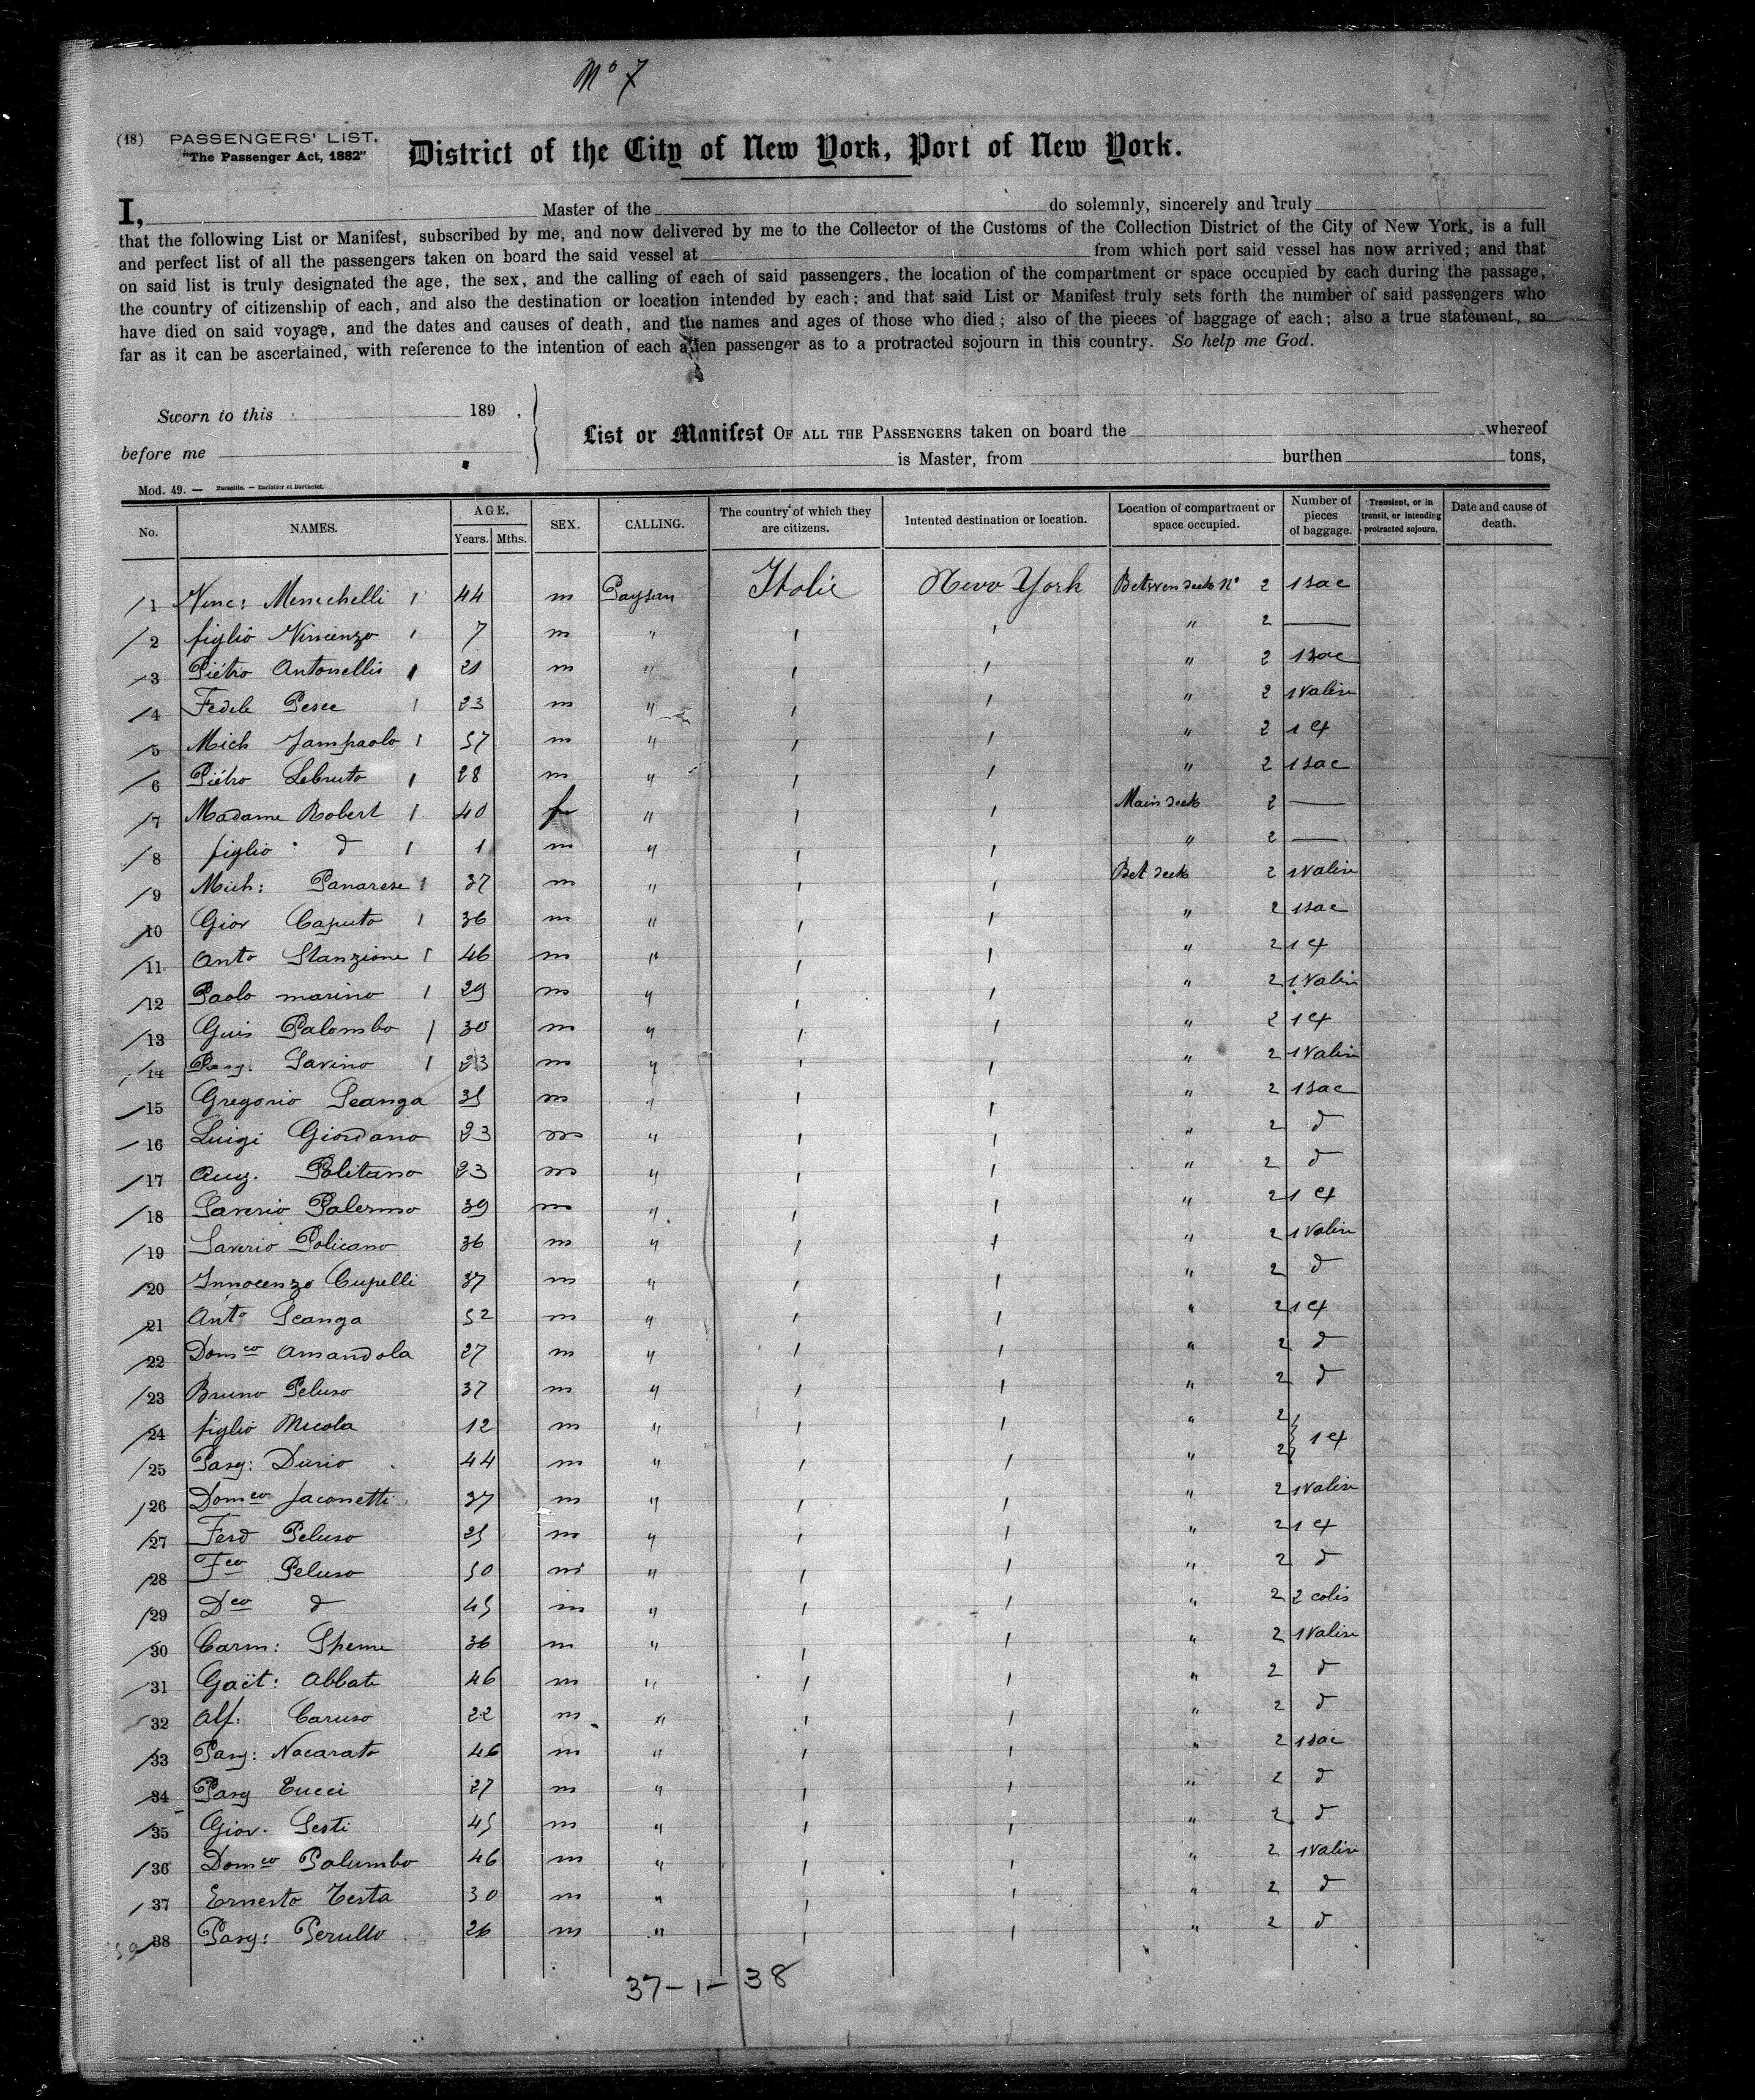 No 7
(18) PASSENGERS' LIST.
"The Passenger Act, 1882"
District of the City of New York, Port of New York.
I, Master of the do solemnly, sincerely and truly
that the following List or Manifest, subscribed by me, and now delivered by me to the Collector of the Customs of the Collection District of the City of New York, is a full
and perfect list of all the passengers taken on board the said vessel at from which port said vessel has now arrived; and that
on said list is truly designated the age, the sex, and the calling of each of said passengers, the location of the compartment or space occupied by each during the passage,
the country of citizenship of each, and also the destination or location intended by each; and that said List or Manifest truly sets forth the number of said passengers who
have died on said voyage, and the dates and causes of death, and the names and ages of those who died; also of the pieces of baggage of each; also a true statement, so
far as it can be ascertained, with reference to the intention of each alien passenger as to a protracted sojourn in this country. So help me God.
Sworn to this 189 ,
before me
List or Manifest OF ALL THE PASSENGERS taken on board the whereof
is Master, from burthen tons,
Mod. 49. — Marseille. — Barlatier et Barthelet.
No. NAMES. AGE. Years. Mths. SEX. CALLING. The country of which they are citizens. Intented destination or location. Location of compartment or space occupied. Number of pieces of baggage. Transient, or in transit, or intending protracted sojourn. Date and cause of death.
1 Menechelli 44 m Paysan Italie New York Between deck No 2 1 sac
2 figlio Vincenzo 7 m " " 2 —
3 Piétro Antonellis 21 m " " 2 1 sac
4 Fedele Pesce 23 m " " 2 1 valise
5 Mich Jampaolo 57 m " " 2 1 
6 Piétro Lebruto 28 m " " 2 1 sac
7 Madame Robert 40 " Main deck 2 —
8 figlio d 1 m " " 2 —
9 Mich: Panarese 37 m " Bet deck 2 1 valise
10 Giov Caputo 36 m " " 2 1 sac
11 Anto Stanzione 46 m " " 2 1
12 Paolo marino 29 m " " 2 1 valise
13 Guis Palombo 30 m " " 2 1
14 Pasq: Savino 23 m " " 2 1 valise
15 Gregorio Scanga 35 m " " 2 1 sac
16 Luigi Giordano 23 m " " 2 d
17 Aug. Politano 23 m " " 2 d
18 Saverio Palermo 39 m " " 2 1
19 Saverio Policano 36 m " " 2 1 valise
20 Innocenzo Cupelli 37 m " " 2 d
21 Anto Scanga 52 m " " 2 1
22 Domco Amandola 27 m " " 2 d
23 Bruno Peluso 37 m " " 2 d
24 figlio Nicola 12 m " " 2
25 Pasq: Durio 44 m " " 2 1
26 Domco Jaconetti 37 m " " 2 1 valise
27 Ferd Peluso 25 m " " 2 1
28 Fco Peluso 50 m " " 2 d
29 Dco d 45 m " " 2 2 colis
30 Carm: Speme 36 m " " 2 1 valise
31 Gaët: Abbate 46 m " " 2 d
32 Alf: Caruso 22 m " " 2 d
33 Pasq: Nacarato 46 m " " 2 1 sac
34 Pasq Tucci 27 m " " 2 d
35 Giov. Sesti 45 m " " 2 d
36 Domco Palumbo 46 m " " 2 1 valise
37 Ernesto Testa 30 m " " 2 d
38 Pasq: Perullo 26 m " " 2 d
37-1-38